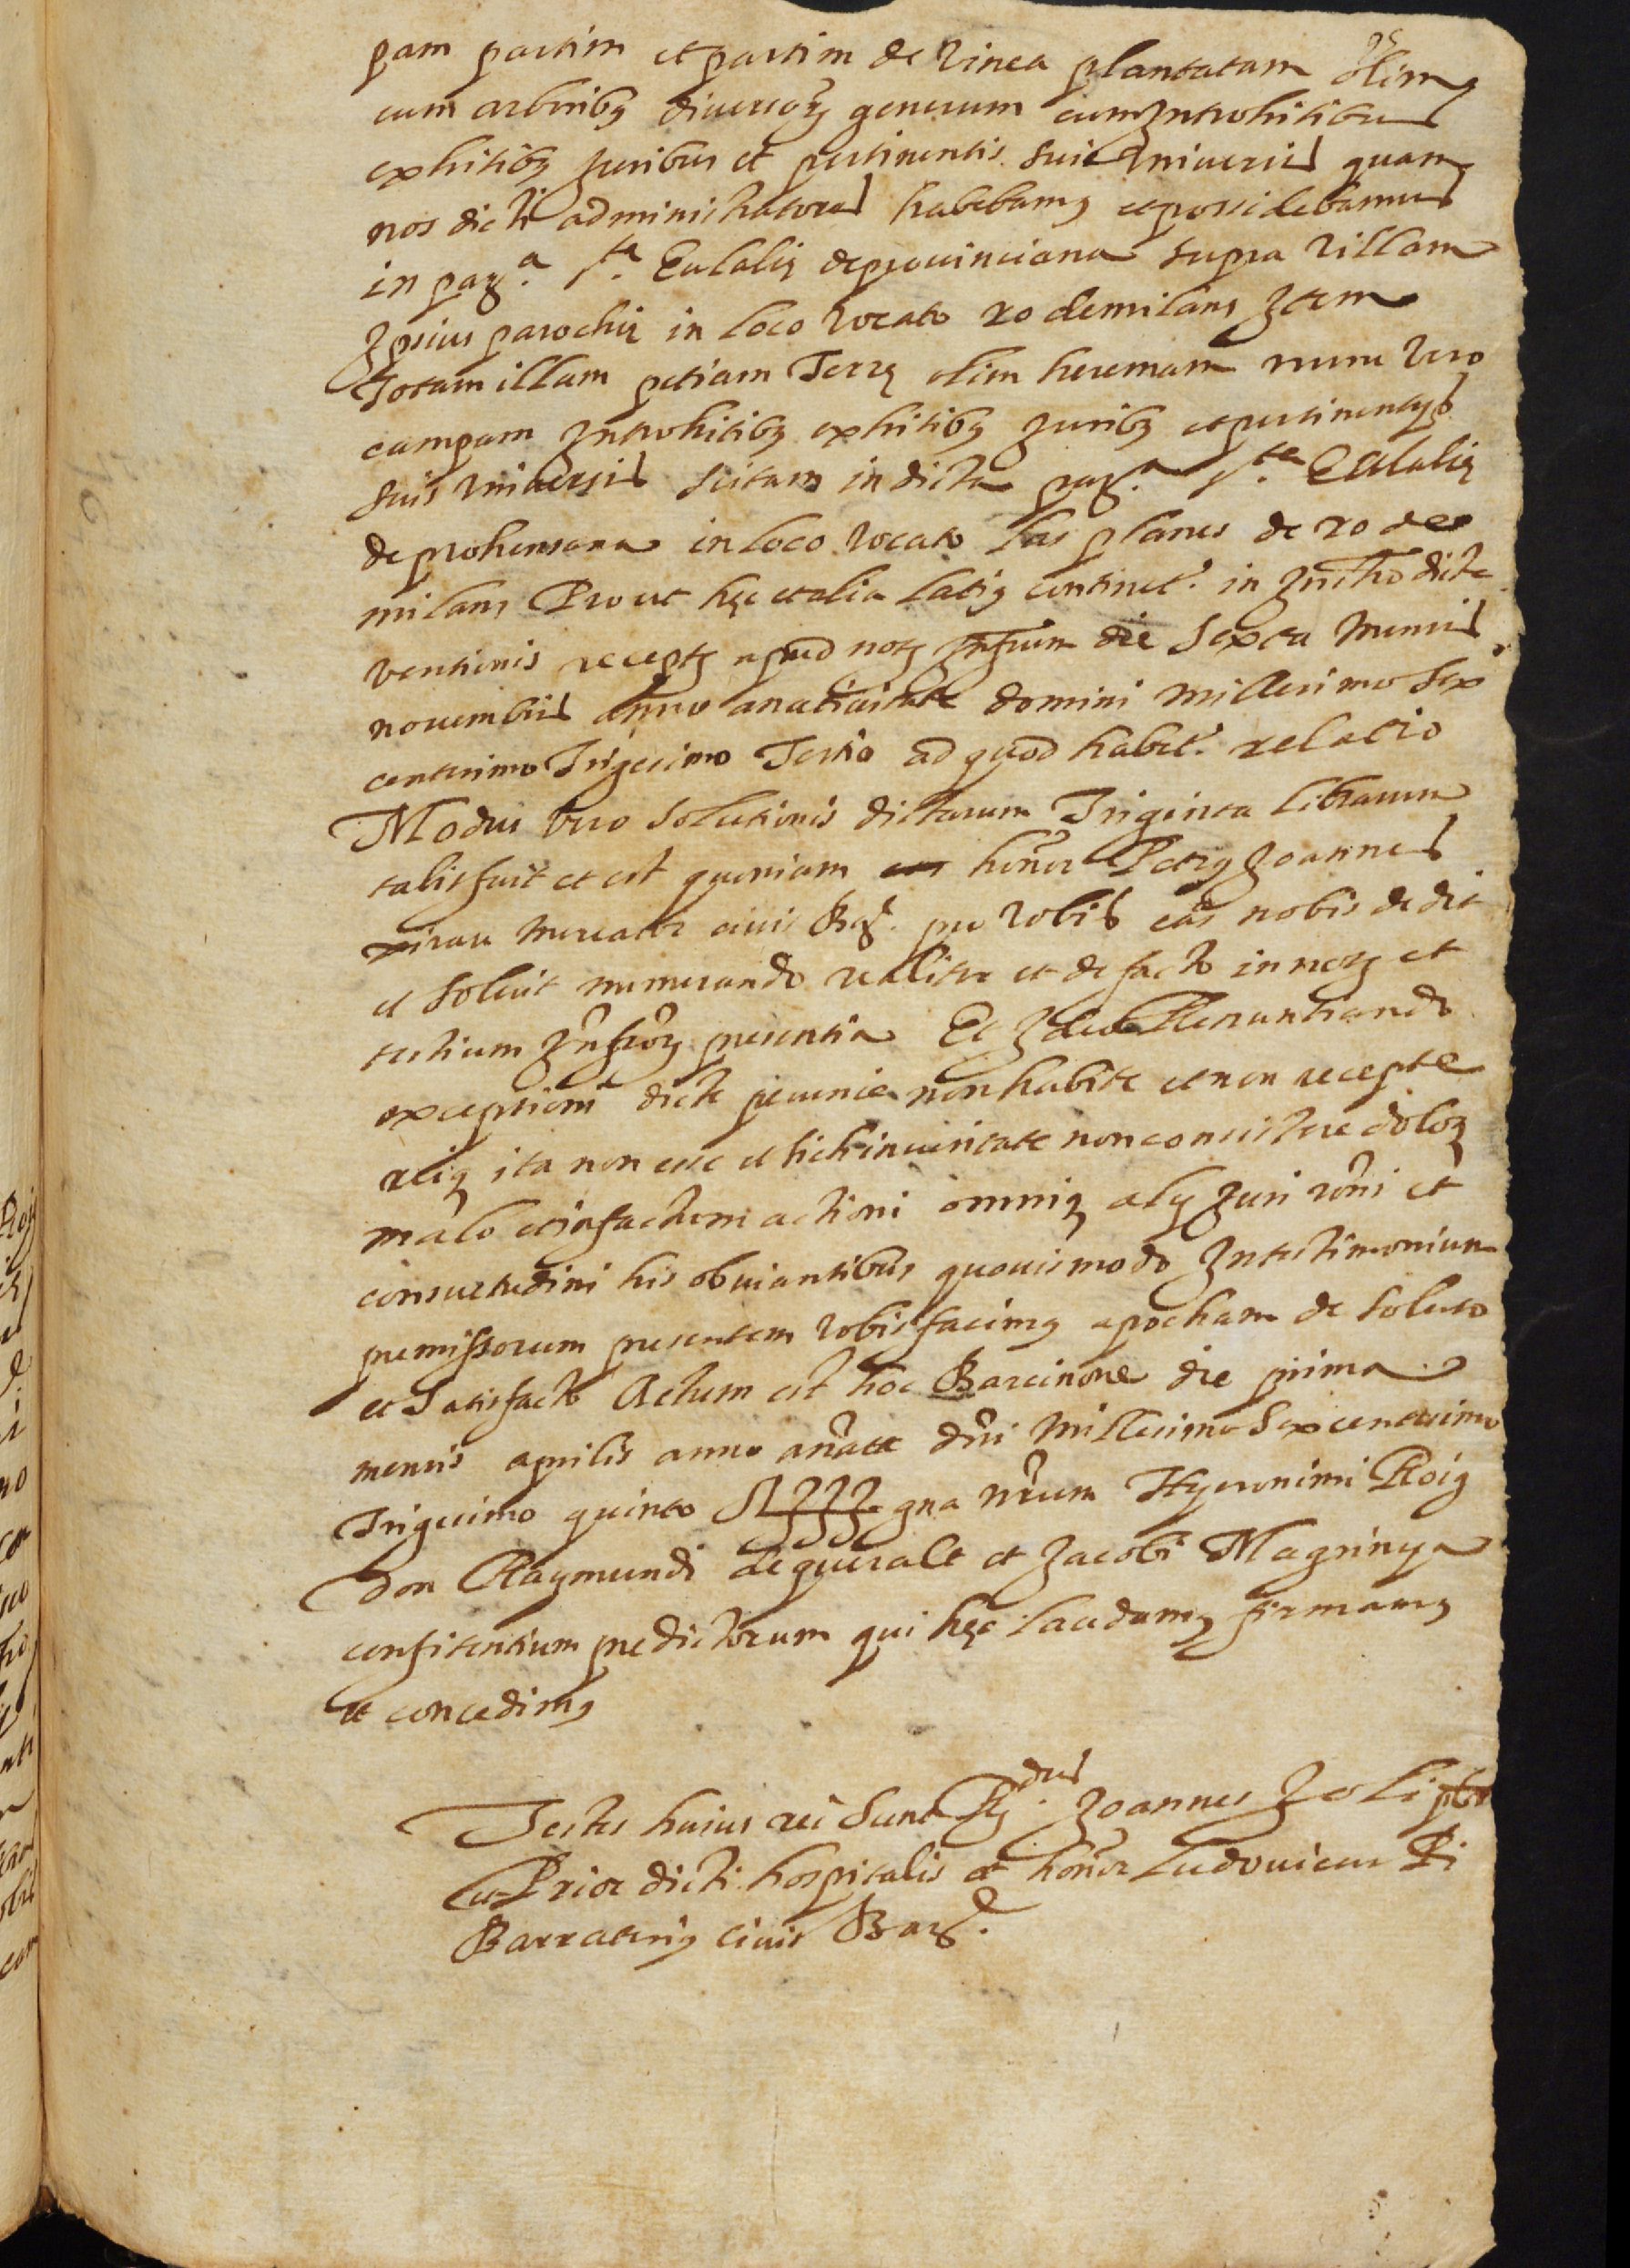 pam partim et partim de vinea plantatam olim
cum arboribꝫ diversoꝝ generum cum introhitibus
exhitibꝫ juribus et pertinentis suis universis quam
nos dicti administratores habebamꝰ et possidebamus
in parª. Sta. Eulalię de provinciana supra villam
ipsius parochię in loco vocato rodemilans Item
Totam illam petiam Terrę olim heremam nunc vero
campam introhitibꝫ exhitibꝫ juribꝫ et pertinentijs
suis universis scitam in dicta parª. Ste. Eulalię
de prohensana in loco vocato las planes de rode
milans Prout hęc et alia latiꝰ continet.r in jnstro dicte
ventionis recepte apud notm jnfrum die sexta mensis
novembris anno a nativitate domini millesimo sex
centesimo Trigesimo Tertio ad quod habet.r relatio
Modus vero solutionis dictarum Triginta librarum
talis fuit et est quoniam honor Petrꝰ Joannes
xirau mercator civis Barᵉ. pro vobis eas nobis dedit
et solvit numerando realiter et de facto in notꝝ et
testium jnfroꝝ presentia Et Ideo Renuntiando
exceptioni dicte pecunie non habite et non recepte
reiqꝫ ita non esse et sich in veritate non consistere doloqꝫ
malo et in factum actioni omniqꝫ alij juri roni et
consuetudini his obviantibus quovismodo In testimonium
premissorum presentem vobis facimꝰ apocham de soluto
et Satisfacto Actum est hoc Barcinone die prima
mensis aprilis anno a nate dni Millesimo Sexcentesimo
Trigesimo quinto Sigꝫgna nrum Hyeronimi Roig
don Raymundi de queralt et Jacobi Magrinya
confitentium predictorum qui hęc laudamꝰ firmamꝰ
et concedimꝰ
Testes huius rei sunt Rdus. Joannes Joli pbr
et Prior dicti hospitalis et honor Ludovicus Pi
Barraterꝰ civis Barᵉ.